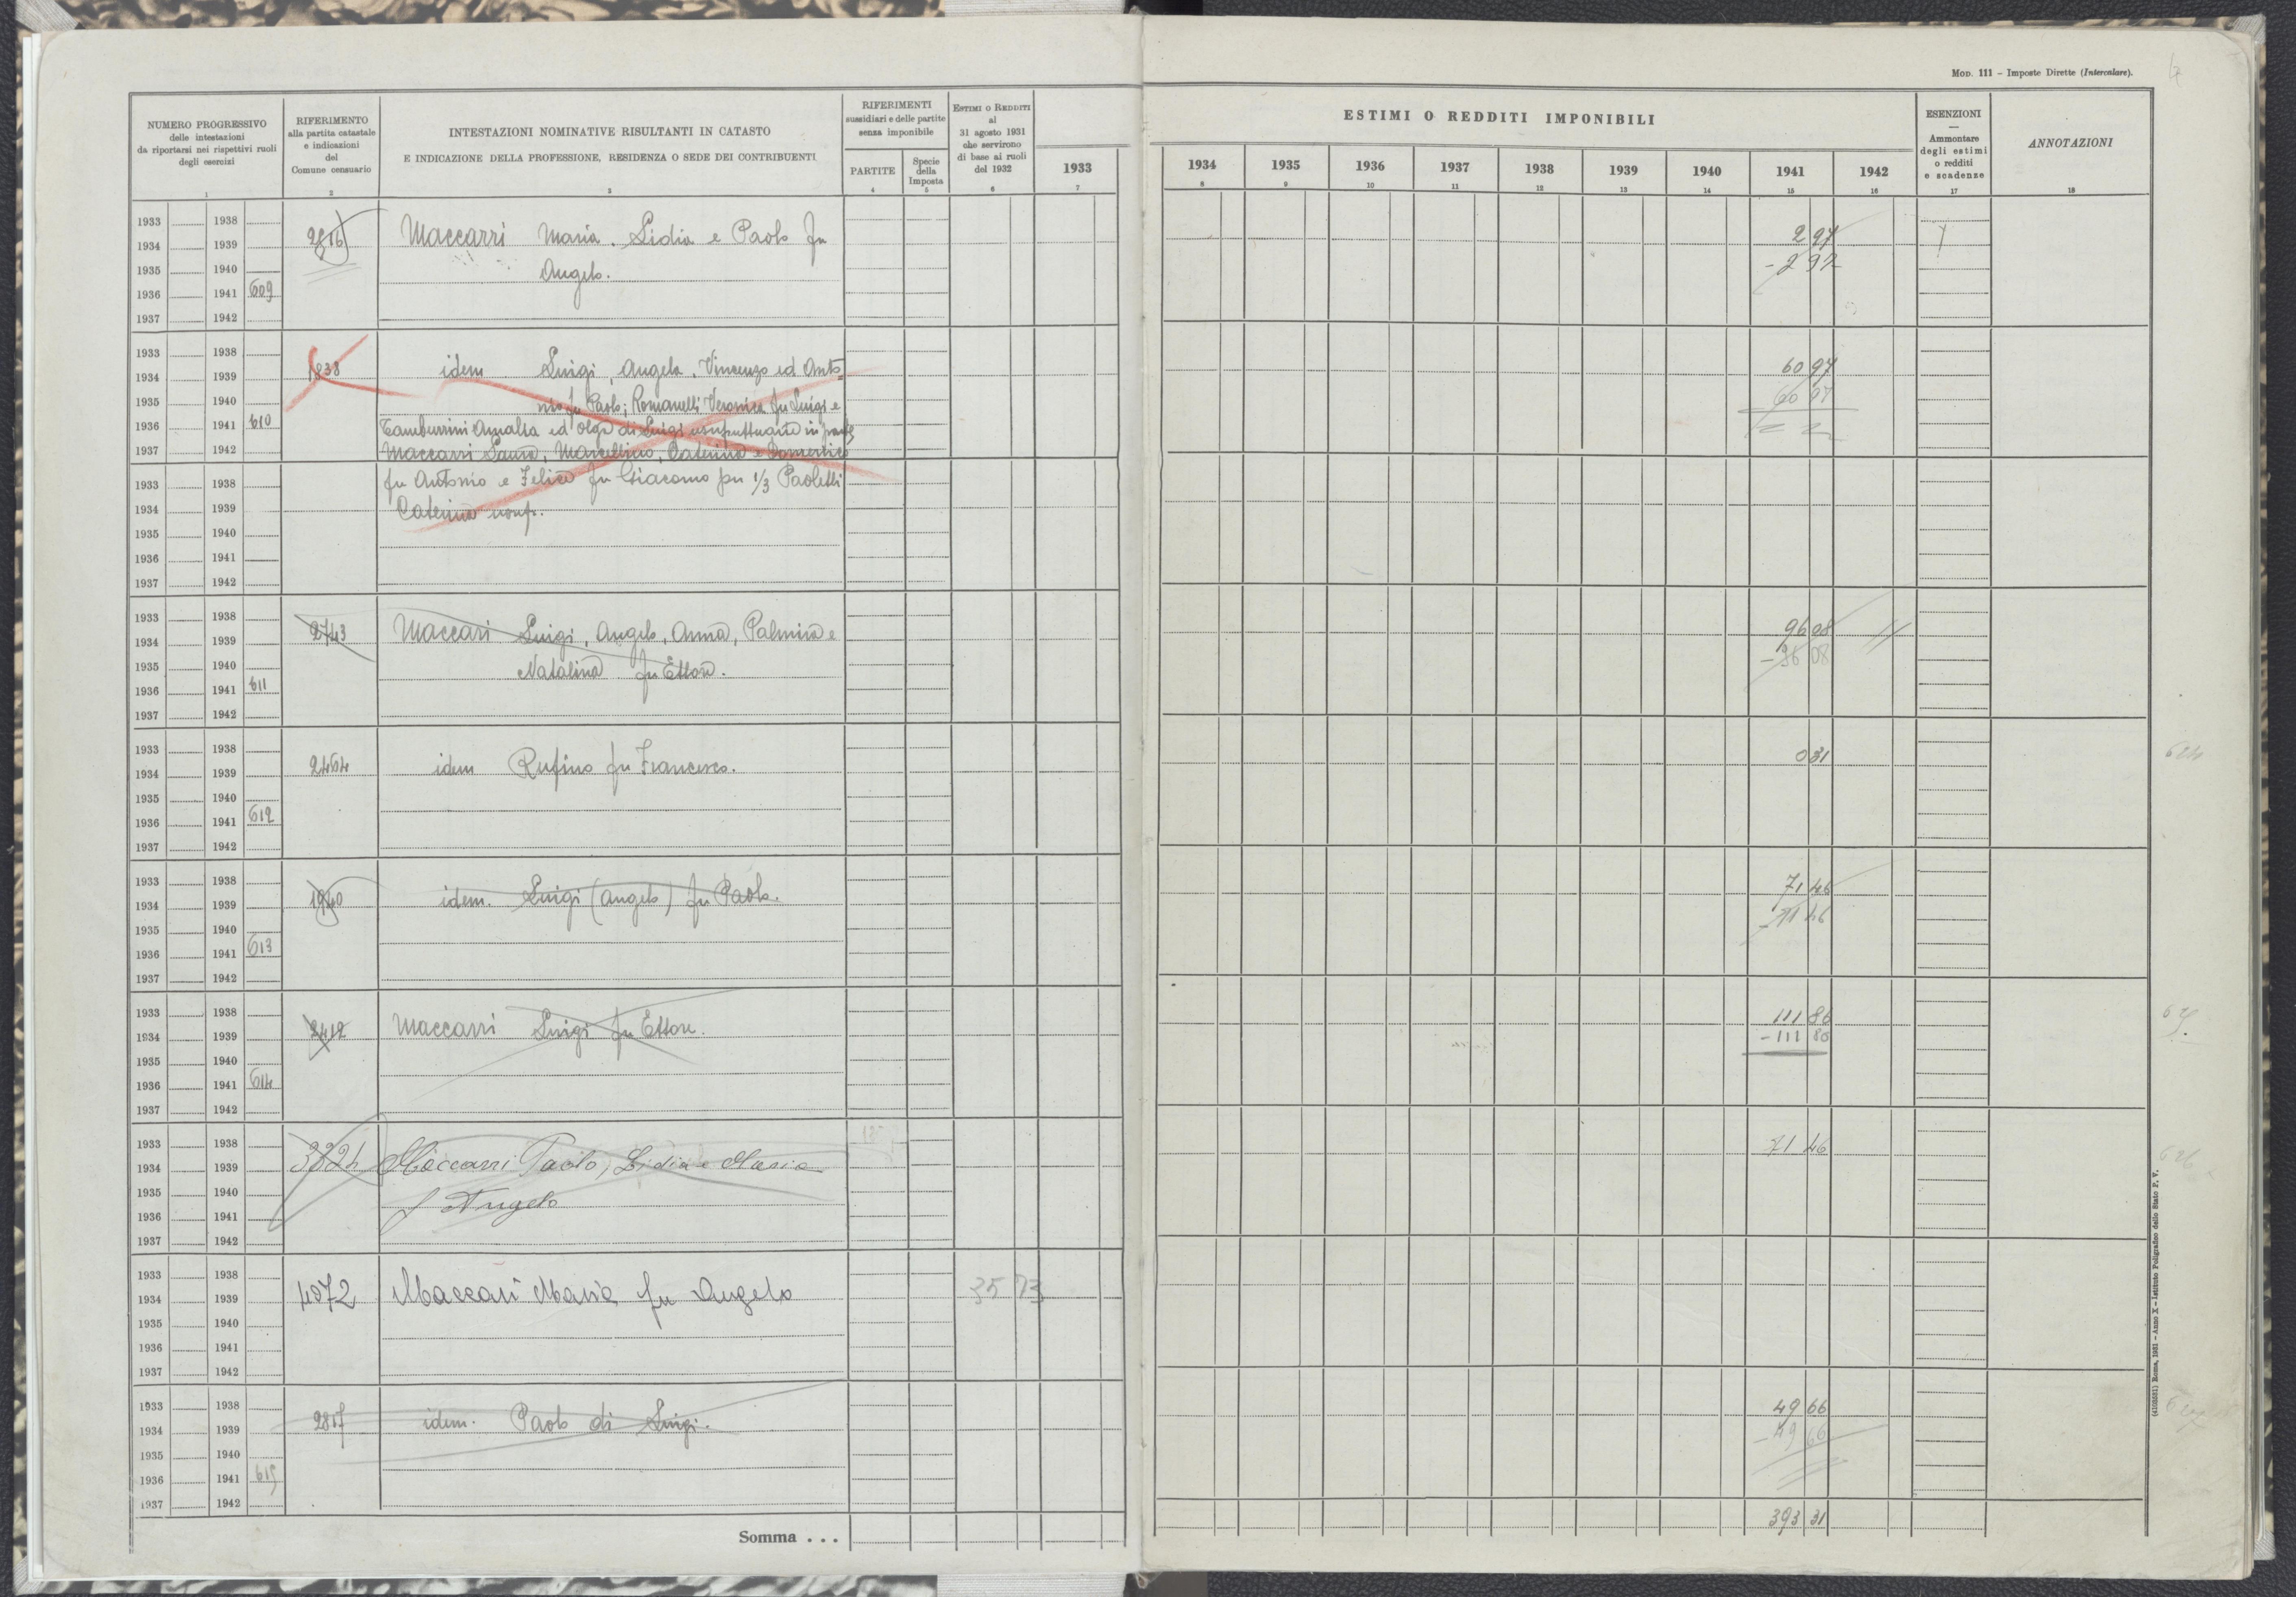 Mod. 111 – Imposte Dirette (Intercalare).
NUMERO PROGRESSIVO
delle intestazioni
da riportarsi nei rispettivi ruoli
degli esercizi
1
RIFERIMENTO
alla partita catastale
e indicazioni
del
Comune censuario
2
INTESTAZIONI NOMINATIVE RISULTANTI IN CATASTO
E INDICAZIONE DELLA PROFESSIONE, RESIDENZA O SEDE DEI CONTRIBUENTI
3
RIFERIMENTI
sussidiari e delle partite
senza imponibile
PARTITE
4
Specie
della
Imposta
5
Estimi o Redditi
al
31 agosto 1931
che servirono
di base ai ruoli
del 1932
6
1933
7
ESTIMI O REDDITI IMPONIBILI
1934 1935 1936 1937 1938 1939 1940 1941 1942
8 9 10 11 12 13 14 15 16
ESENZIONI
—
Ammontare
degli estimi
o redditi
e scadenze
17
ANNOTAZIONI
18
1933 1938
1934 1939 2816 Maccarri Maria. Lidia e Paolo fu 2 97
1935 1940 Angelo. - 2 97
1936 1941 609
1937 1942
1933 1938
1934 1939 1838 idem Luigi, Angelo, Vincenzo ed Anto= 60 97
1935 1940 nio fu Paolo; Romanelli Veronica fu Luigi e 60 97
1936 1941 610 Tamburrini Amalia ed Olga di Luigi usufruttuarie in parte
1937 1942 Maccarri Laura, Marcellino, Caterina e Domenico
1933 1938 fu Antonio e Felice fu Giacomo per 1/3 Paoletti
1934 1939 Caterina usuf.
1935 1940
1936 1941
1937 1942
1933 1938
1934 1939 2743 Maccari Luigi, Angelo, Anna, Palmina e 96 08
1935 1940 Natalina fu Ettore. - 96 08
1936 1941 611
1937 1942
1933 1938
1934 1939 2464 idem Rufino fu Francesco. 0 31 624
1935 1940
1936 1941 612
1937 1942
1933 1938
1934 1939 1940 idem. Luigi (Angelo) fu Paolo. 71 46
1935 1940 - 71 46
1936 1941 613
1937 1942
1933 1938
1934 1939 2412 Maccarri Luigi fu Ettore. 111 86
1935 1940 - 111 86
1936 1941 614
1937 1942
1933 1938
1934 1939 3824 Maccarri Paolo, Lidia e Maria 71 46 626
1935 1940 f Angelo
1936 1941
1937 1942
1933 1938
1934 1939 4072 Maccari Maria fu Angelo 35 73
1935 1940
1936 1941
1937 1942
1933 1938
1934 1939 2817 idem. Paolo di Luigi. 49 66
1935 1940 - 49 66
1936 1941 615
1937 1942
Somma . . . 393 31
(4103681) Roma, 1931 – Anno X – Istituto Poligrafico dello Stato P. V.